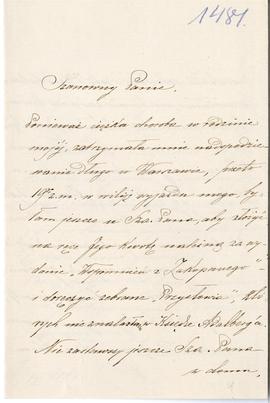 1481.
Szanowny Panie.
Ponieważ ciężka choroba w rodzinie
mojéj, zatrzymała mnie nadspodzie
wanie długo w Warszawie, przeto
19 z.m. w wilją wyjazdu mego, by
łam jeszcze u Sza. Pana, aby złożyć
na ręce Jego kwotę należną za wy
danie „Wspomnień z Zakopanego"
i doręczyć zebrane „Przysłowia", któ
rych nie znalazłam w Księdze Adalberga.
Nie zastawszy jeszcze Sza. Pana
w domu,